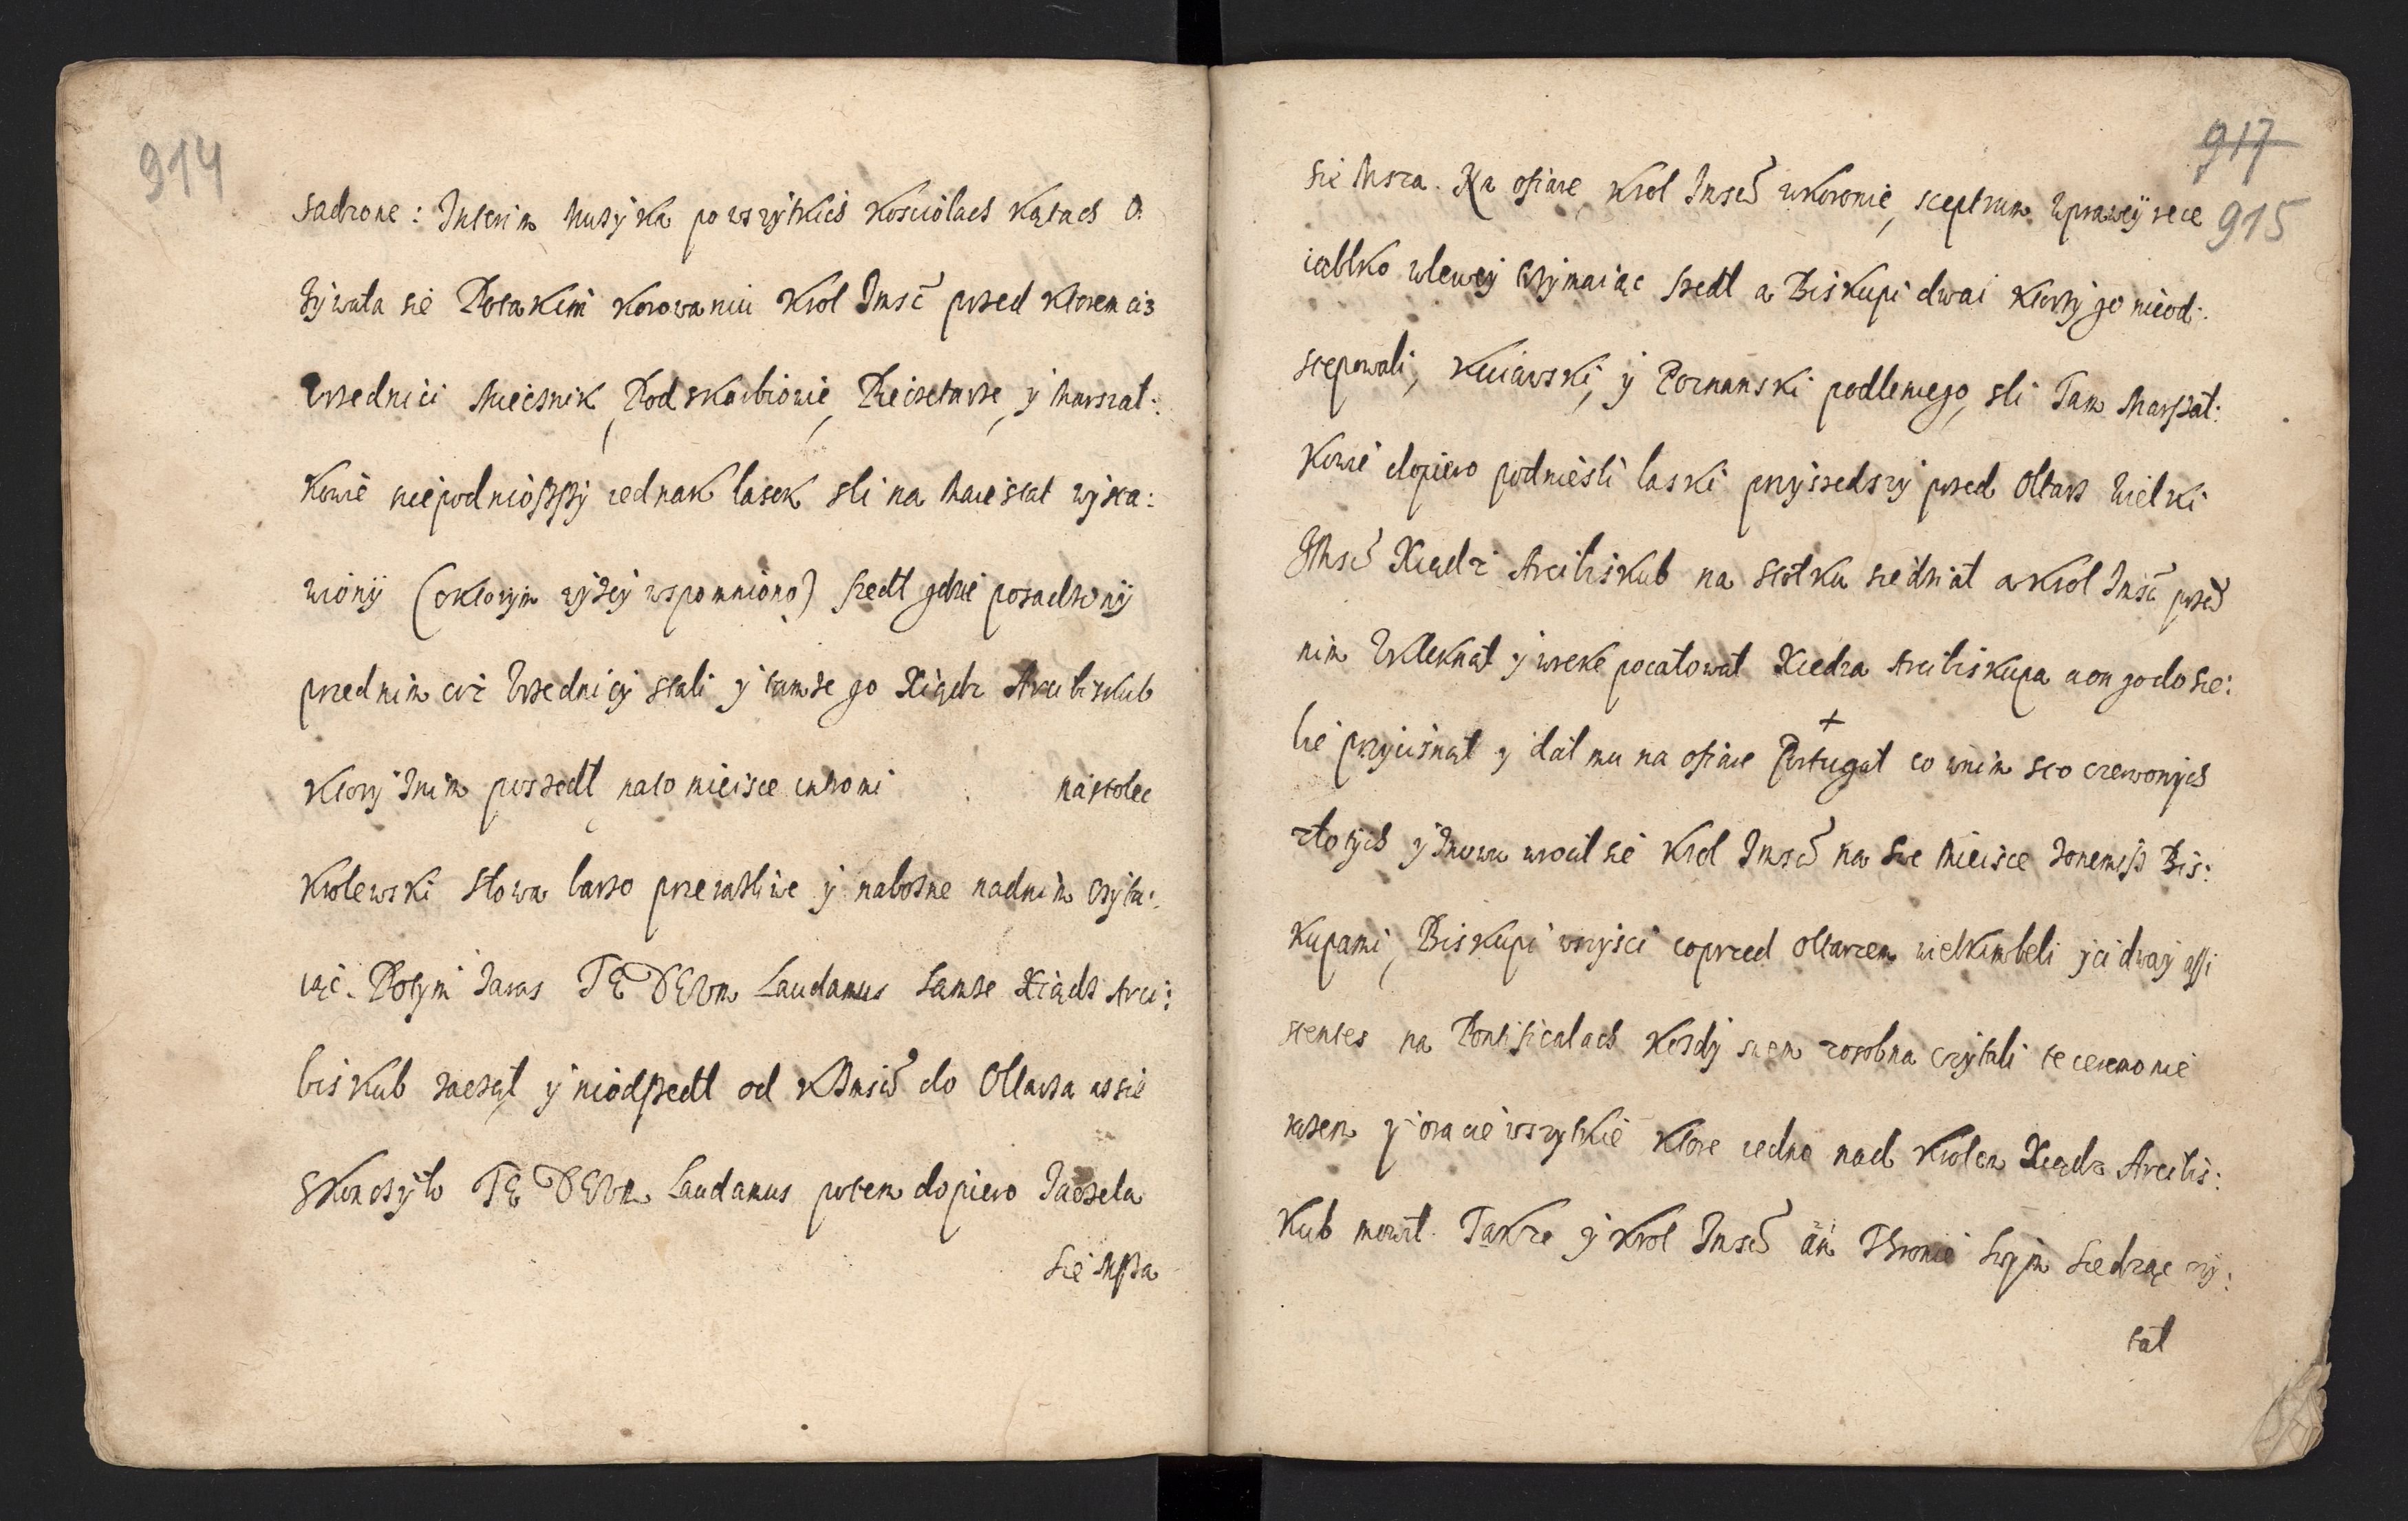 914
sadzone: Interim Musÿka powszÿtkich kosciolach kątach O
zÿwała sie Potakim korowaniu Krol Jmsć przed ktorem ciż
Vrzednici Miecsnik, Podskarbiowie, Pieczetarze, ÿ Marszał:
kowie niepodniosszÿ iednak lasek sli na Maiestat wÿsta:
wionÿ (oktorÿm wÿzeÿ wspomniono) szedł gdzie posadzonÿ
przednim ciż Vrzednicÿ stali ÿ tamze go Xiądz Arcibiskub
ktorÿ znim poszedł nato mieisce introni nastolec
krolewski słowa barzo przerazliwe ÿ nabozne nadnim czÿta:
iąc. Potÿm zaras TE DEVM Laudamus tamze Xiądz Arci:
biskub zaczął ÿ nieodszedł od KJmsci do Ołtarza az sie
skonczÿło TE DEVM Laudamus potem dopiero zaczeła
sie Msza
917
915
sie Msza. Na ofiare Krol Jmsć wkoronie, sceptrum wpraweÿ rece
iablko wleweÿ trzÿmaiąc szedł a Biskupi dwai ktorzÿ go nieod:
stepowali, Kuiawski, ÿ Poznanski podleniego, sli Tam Marszał:
kowie dopiero podniesli laski przÿszedszÿ przed Ołtarz Wielki
JMsć Xiądz Arcibiskub na stołku siedział a Krol Jmsć przed
nim Vkleknął ÿ wreke pocałował Xiedza Arcibiskupa a on go do sie:
bie przÿcisnął ÿ dał mu na ofiare Portugał co wnim sto czerwonÿch
złotÿch ÿ znowu wrocił sie Krol Jmsć na swe Mieisce zonemisz Bis:
kupami, Biskupi wszÿsci coprzed ołtarzem wielkim beli ÿ ci dwaÿ assi
stentes na Pontificalach kozdÿ znien zosobna czÿtali te ceremonie
razem ÿ oracie wszÿtkie ktore iedno nad Krolem Xiądz Arcibis:
kub mowił. Takze ÿ Krol Jmsć na Thronie swÿm siedząc czÿ:
tał